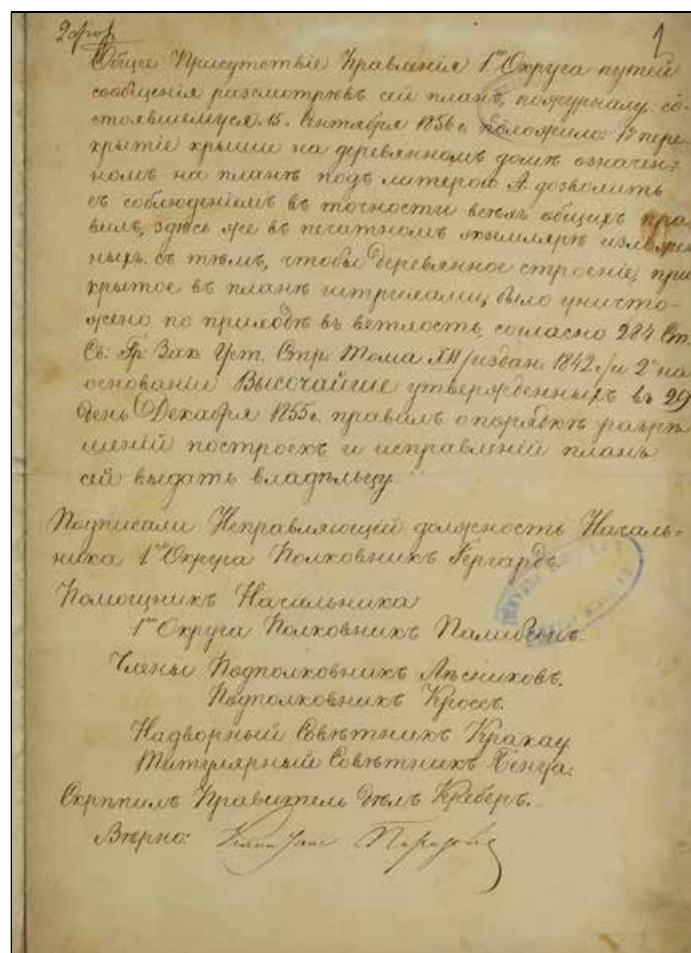 1
Общее Присутствіе Правленія 1го Округа путей
сообщенія разсмотрѣвъ сей планъ, по журналу со-
стоявшемуся 15. Сентября 1856 г. положило: 1е пере-
крытіе крыши на деревянномъ домѣ означен-
номъ на планѣ подъ литерою А. дозволить
съ соблюденіемъ въ точности всѣхъ общихъ пра-
вилъ, здѣсь же въ печатномъ экземплярѣ изложен-
ныхъ. съ тѣмъ, чтобы деревянное строеніе, при
крытое въ планѣ штрихами, было уничто-
жено по приходѣ въ ветхость, согласно 284 Ст.
Св: Гр: Зак: Уст. Стр. Тома XII /издан. 1842 г./ и 2е на
основаніи Высочайше утвержденныхъ въ 29
день Декабря 1855 г. правилъ о порядкѣ разрѣ-
шеній построекъ и исправленій планъ
сей выдать владѣльцу.
Подписали Исправляющій должность Началь-
ника 1го Округа Полковникъ Гергардъ.
Помощникъ Начальника
1го Округа Полковникъ Палибинъ.
Члены Подполковникъ Лѣсниковъ.
Подполковникъ Кроссъ.
Надворный Совѣтникъ Кракау.
Титулярный Совѣтникъ
Скрѣпилъ Правитель Дѣлъ Креберъ.
Вѣрно: